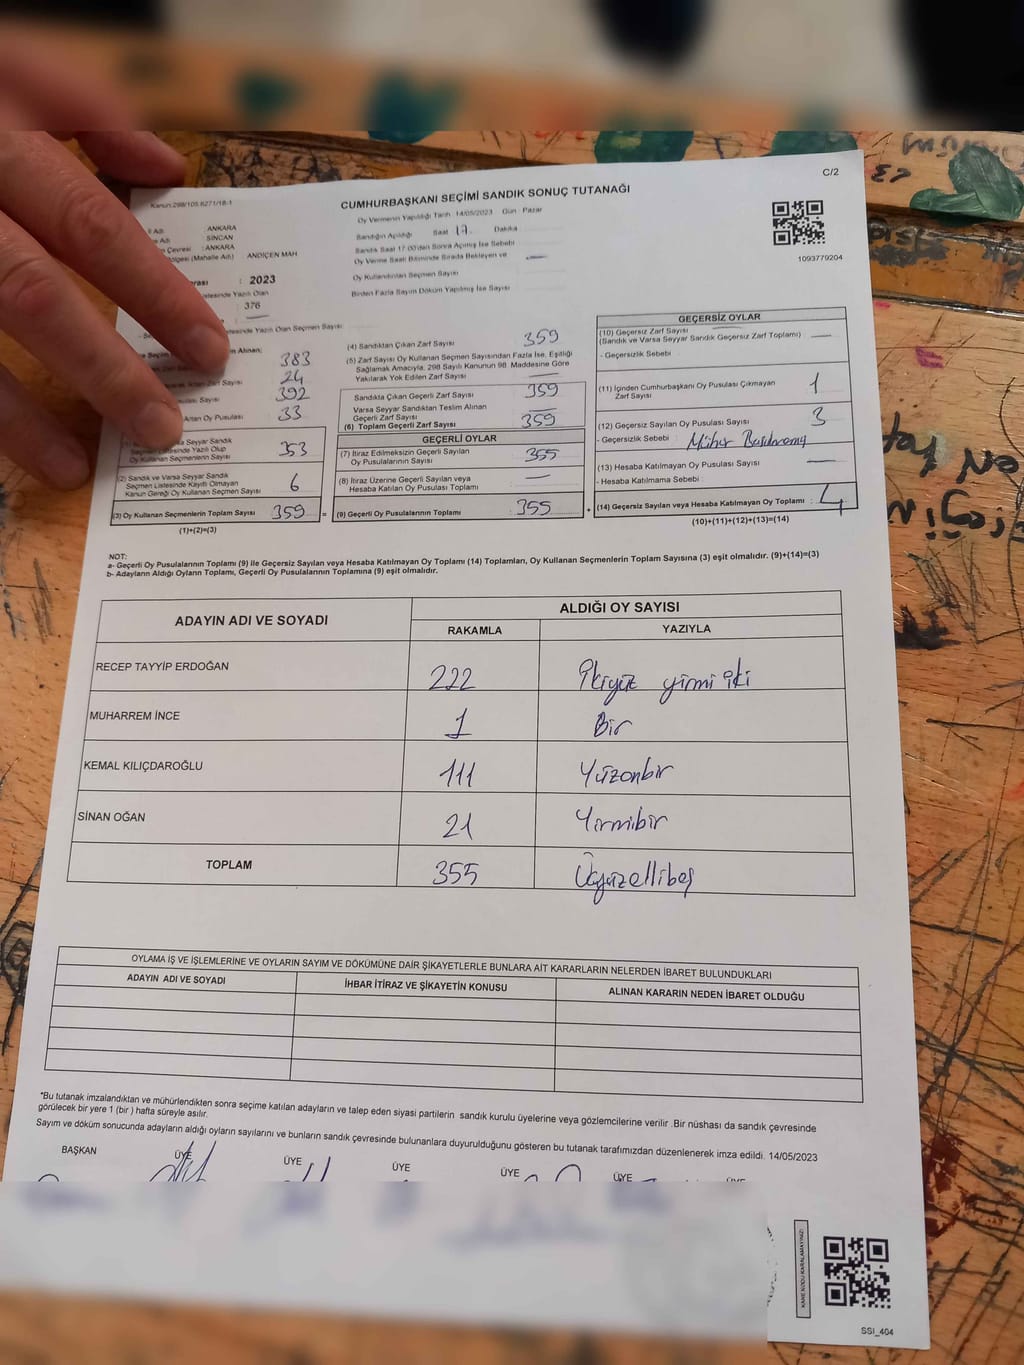 C/2
Kanun:298/105 6271/18-1
CUMHURBAŞKANI SEÇİMİ SANDIK SONUÇ TUTANAĞI
Oy Vermenin Yapıldığı Tarih 14/05/2023 Gün : Pazar
Sandığın Açıldığı Saat 17. Dakika
Sandık Saat 17:00'den Sonra Açılmış İse Sebebi
Oy Verme Saati Bitiminde Sırada Bekleyen ve —
Oy Kullandırılan Seçmen Sayısı
Birden Fazla Sayım Döküm Yapılmış İse Sayısı
1093779204
Adı : ANKARA
Adı : SİNCAN
Çevresi : ANKARA
(Mahalle Adı) : ANDİÇEN MAH
: 2023
Listesinde Yazılı Olan
: 376
Listesinde Yazılı Olan Seçmen Sayısı
Alınan;
383
Zarf Sayısı 24
Sayısı 392
Artan Oy Pusulası 33
Seyyar Sandık
Seçmen Listesinde Yazılı Olup
Oy Kullanan Seçmenlerin Sayısı 353
(2) Sandık ve Varsa Seyyar Sandık
Seçmen Listesinde Kayıtlı Olmayan
Kanun Gereği Oy Kullanan Seçmen Sayısı 6
(3) Oy Kullanan Seçmenlerin Toplam Sayısı 359 =
(1)+(2)=(3)
(4) Sandıktan Çıkan Zarf Sayısı 359
(5) Zarf Sayısı Oy Kullanan Seçmen Sayısından Fazla İse, Eşitliği
Sağlamak Amacıyla, 298 Sayılı Kanunun 98. Maddesine Göre
Yakılarak Yok Edilen Zarf Sayısı —
Sandıkta Çıkan Geçerli Zarf Sayısı 359
Varsa Seyyar Sandıktan Teslim Alınan
Geçerli Zarf Sayısı —
(6) Toplam Geçerli Zarf Sayısı 359
GEÇERLİ OYLAR
(7) İtiraz Edilmeksizin Geçerli Sayılan
Oy Pusulalarının Sayısı 355
(8) İtiraz Üzerine Geçerli Sayılan veya
Hesaba Katılan Oy Pusulaları Toplamı —
(9) Geçerli Oy Pusulalarının Toplamı : 355 +
GEÇERSİZ OYLAR
(10) Geçersiz Zarf Sayısı
(Sandık ve Varsa Seyyar Sandık Geçersiz Zarf Toplamı) —
- Geçersizlik Sebebi
(11) İçinden Cumhurbaşkanı Oy Pusulası Çıkmayan
Zarf Sayısı 1
(12) Geçersiz Sayılan Oy Pusulası Sayısı 3
- Geçersizlik Sebebi : Mühür
(13) Hesaba Katılmayan Oy Pusulası Sayısı —
- Hesaba Katılmama Sebebi :
(14) Geçersiz Sayılan veya Hesaba Katılmayan Oy Toplamı : 4
(10)+(11)+(12)+(13)=(14)
NOT:
a- Geçerli Oy Pusulalarının Toplamı (9) ile Geçersiz Sayılan veya Hesaba Katılmayan Oy Toplamı (14) Toplamları, Oy Kullanan Seçmenlerin Toplam Sayısına (3) eşit olmalıdır. (9)+(14)=(3)
b- Adayların Aldığı Oyların Toplamı, Geçerli Oy Pusulalarının Toplamına (9) eşit olmalıdır.
ADAYIN ADI VE SOYADI
ALDIĞI OY SAYISI
RAKAMLA YAZIYLA
RECEP TAYYİP ERDOĞAN 222 İkiyüz yirmi iki
MUHARREM İNCE 1 Bir
KEMAL KILIÇDAROĞLU 111 Yüzonbir
SİNAN OĞAN 21 Yirmibir
TOPLAM 355 Üçyüzellibeş
OYLAMA İŞ VE İŞLEMLERİNE VE OYLARIN SAYIM VE DÖKÜMÜNE DAİR ŞİKAYETLERLE BUNLARA AİT KARARLARIN NELERDEN İBARET BULUNDUKLARI
ADAYIN ADI VE SOYADI İHBAR İTİRAZ VE ŞİKAYETİN KONUSU ALINAN KARARIN NEDEN İBARET OLDUĞU
"Bu tutanak imzalandıktan ve mühürlendikten sonra seçime katılan adayların ve talep eden siyasi partilerin sandık kurulu üyelerine veya gözlemcilerine verilir .Bir nüshası da sandık çevresinde
görülecek bir yere 1 (bir ) hafta süreyle asılır.
Sayım ve döküm sonucunda adayların aldığı oyların sayılarını ve bunların sandık çevresinde bulunanlara duyurulduğunu gösteren bu tutanak tarafımızdan düzenlenerek imza edildi. 14/05/2023
BAŞKAN ÜYE ÜYE ÜYE ÜYE ÜYE ÜYE
SSI_404